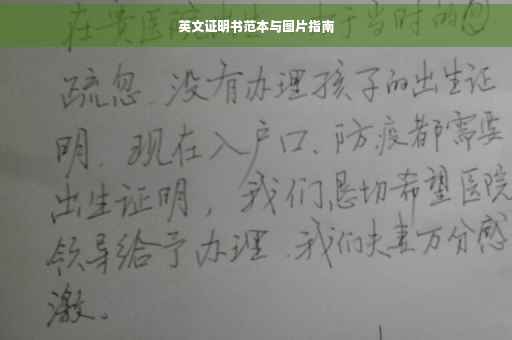 英文证明书范本与图片指南
在贵医院 于当时的
疏忽、没有办理孩子的出生证
明.现在入户口、防疫都需要
出生证明,我们恳切希望医院
领导给予办理.我们夫妻万分感
激。